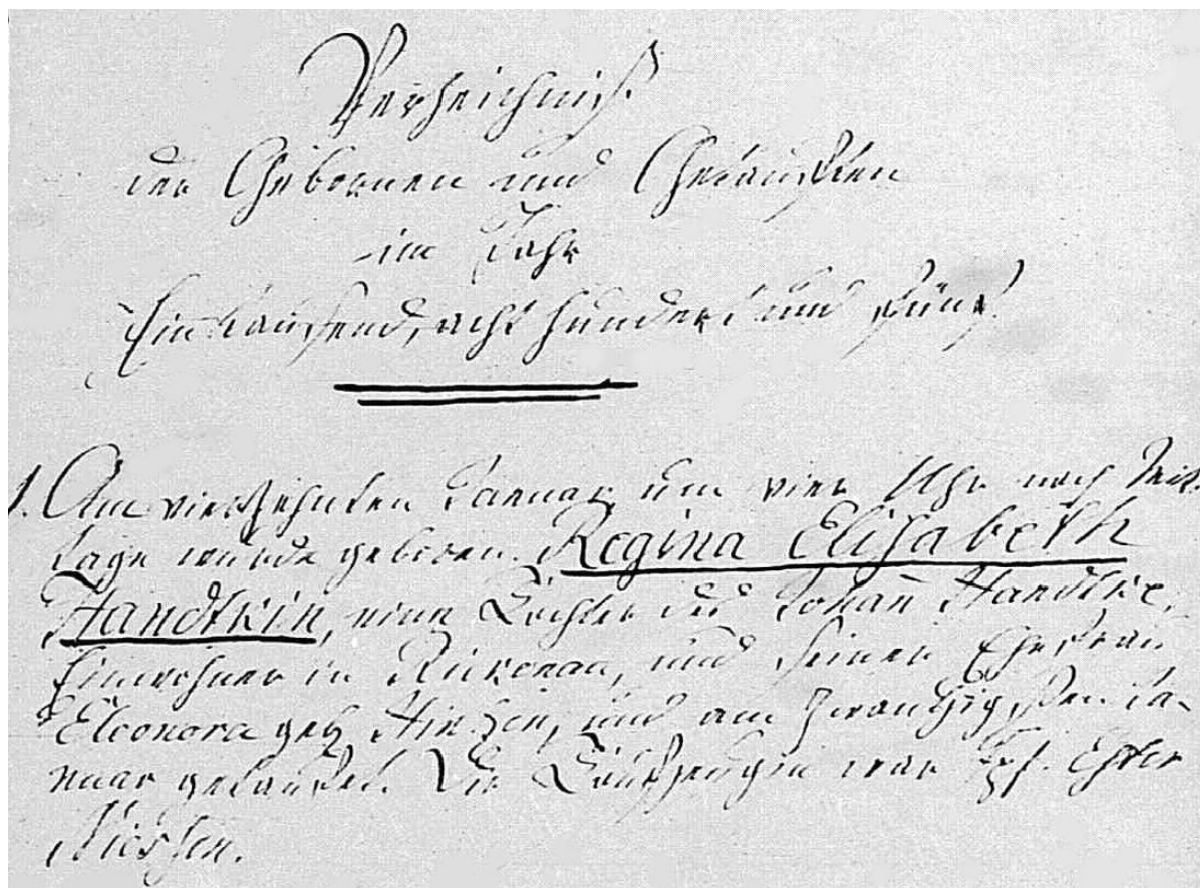 Verzeichniß
der Gebornen und Getauften
im Jahr
Ein tausend, acht hundert und fünf.
1. Am vierzehnten Januar um vier Uhr nach Mit-
tage wurde geboren Regina Elisabeth
Handtkin, eine Tochter des Johañ Handtke,
Einwohner in, und seiner Ehefrau
Eleonora geb, und am zwanzigsten Ja-
nuar getauft. Die Taufzeugin war Ester